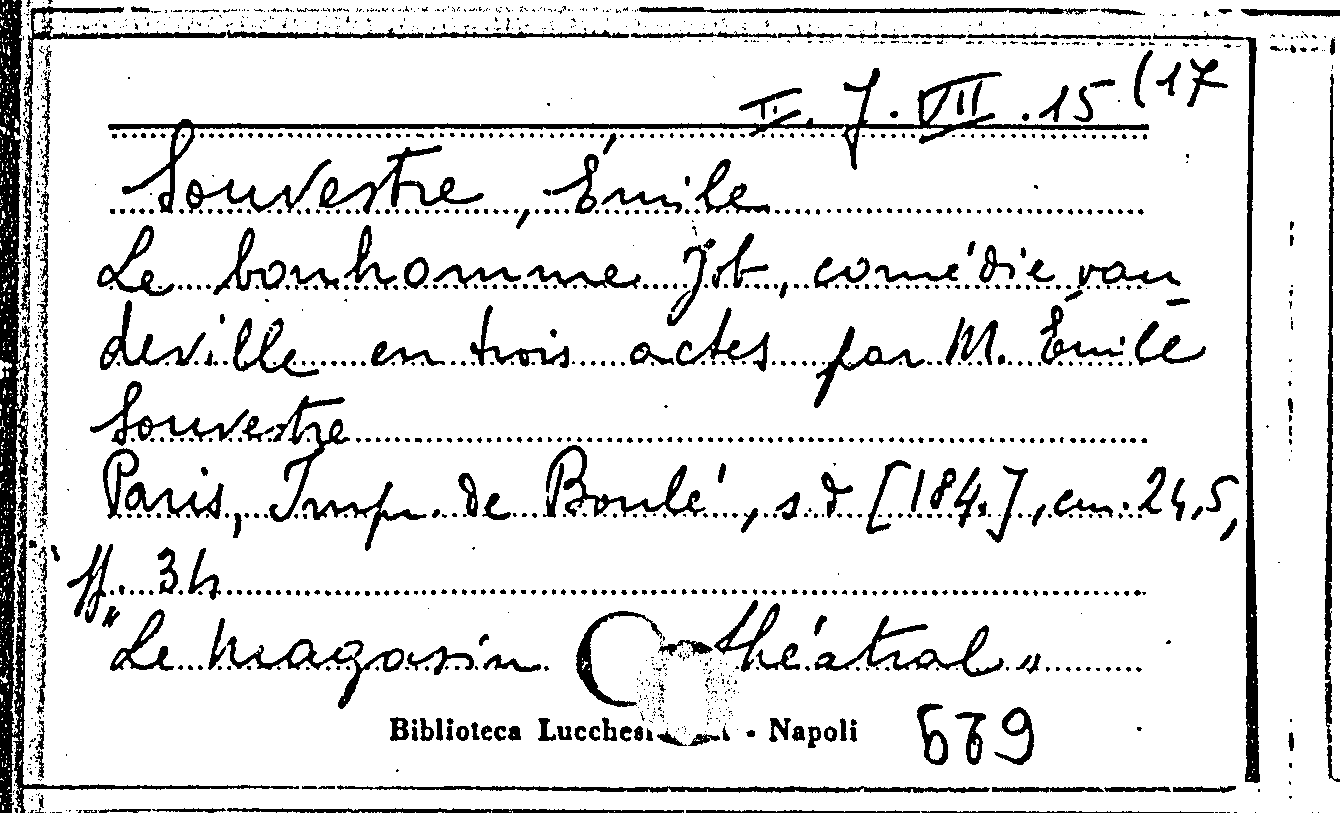 II. J. VII. 15 (17
Souvestre, Émile
Le bonhomme Job, comédie vau
deville en trois actes par M. Émile
Souvestre
Paris, Imp. de Boulé, s.d [184.], cm. 24,5,
pp. 34
"Le magasin théatral"
Biblioteca Lucchesi - Napoli
579